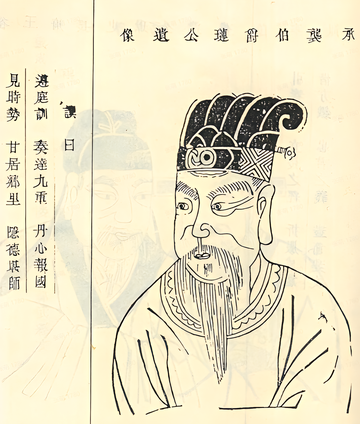 承襲伯爵璉公遺像
讚曰
遵庭訓 奏達九重 丹心報國
見時勢 甘居鄉里 隱德堪師